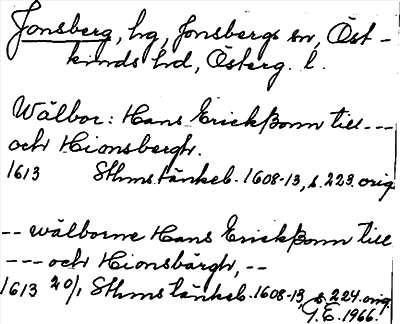 Jonsberg, hg, Jonsbergs sn, Öst-
kinds hd, Österg. l.
Wälbor: Hans Erickßonn till ---
och Hionsbergh.
1613 Sthms tänkeb. 1608-13, s. 223. orig
-- wälborne Hans Erickßonn till
--- och Hionsbärgh, --
1613 20/1 Sthms tänkeb. 1608-13, s. 224. orig.
G.E. 1966.